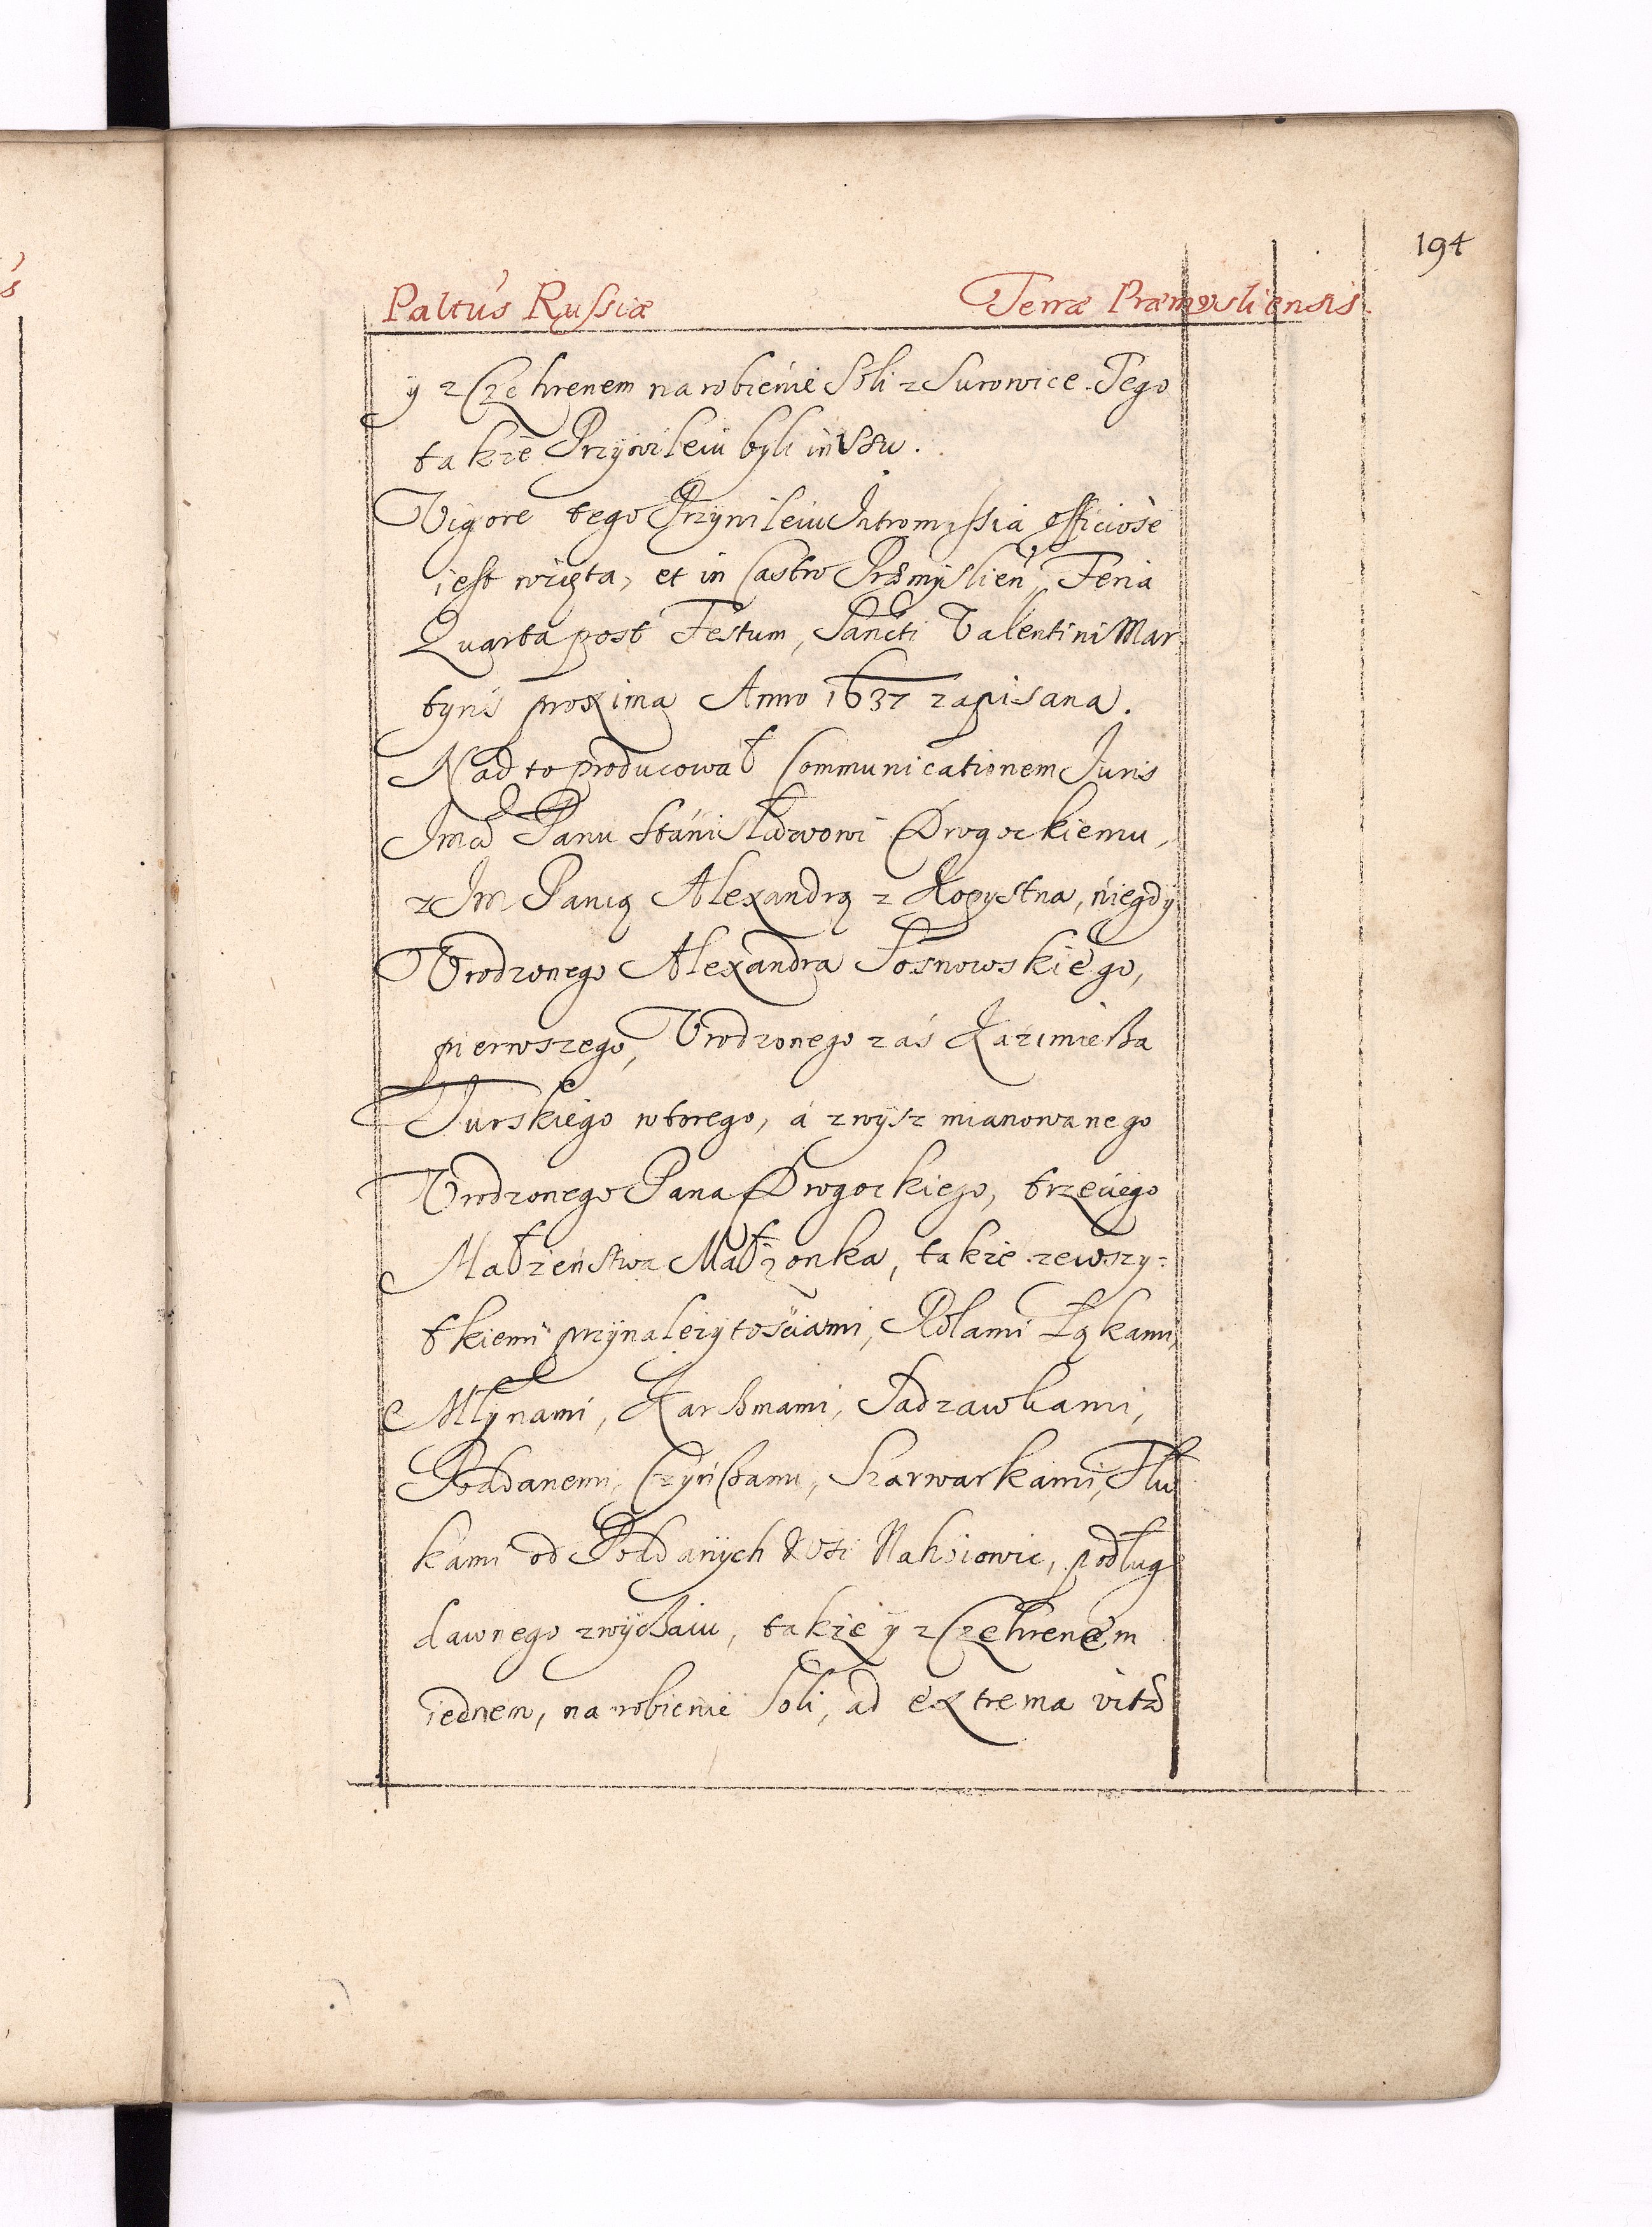 194
Paltus Russiæ Terræ Præmysliensis.
y z Czehrenem na robienie Soli z Surowice. Tego
także Przywileiu byli in vsu.
Vigore tego Przywileiu Intromissia officiose
iest wzięta, et in Castro Przemyslien, Feria
Quarta post Festum, Sancti Valentini Mar
tyris proxima Anno 1637 zapisana.
Nad to producował Communicationem Iuris
Imci Panu Stanisławowi Drogockiemu,
z Im Panią Alexandrą z Kopystna, niegdy
Vrodzonego Alexandra Sosnowskiego,
pierwszego, Vrodzonego zás Kazimießa
Turskiego wtorego, á zwysz mianowanego
Vrodzonego Pana Drogockiego, trzeciego
Małżeństwa Małżonka, także zewszy=
tkiemi przynależytościami, Rolami Łąkami,
Młynami, Karßmami, Sadzawkami,
Poddanemi, Czynßami, Szarwarkami, Słu
kami od Poddanych Wsi podług
dawnego zwyczaiu, także y z Czehrenem
iednem, na robienie Soli, ad extrema vitæ